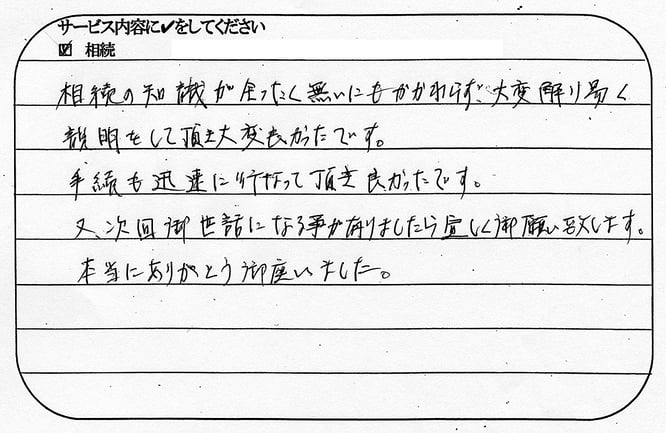 サービス内容に✔をしてください
☑ 相続
相続の知識が全ったく無いにもかかわらず、大変解り易く
説明をして頂き大変良かったです。
手続も迅速に行なって頂き良かったです。
又、次回御世話になる事がありましたら宜しく御願い致します。
本当にありがとう御座いました。